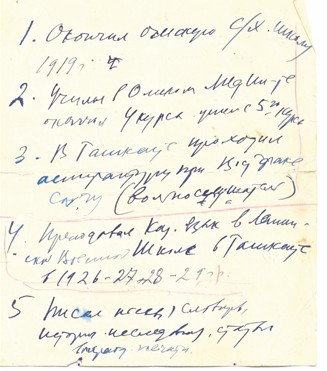 1. Окончил омскую с/х. школу
1919 г.
2. Учился в Омском Мединс-те
окончил 4 курса ушел с 5го курса
3. В Ташкенте проходил
аспирантуру при
САГУ (вольнослушатель)
4. Преподавал Каз. язык в Ленин-
ской Военной Школе в Ташкенте
в 1926-27-28-29 г.
5 Писал пьесы, словарь,
история исследован. статьи
печати.